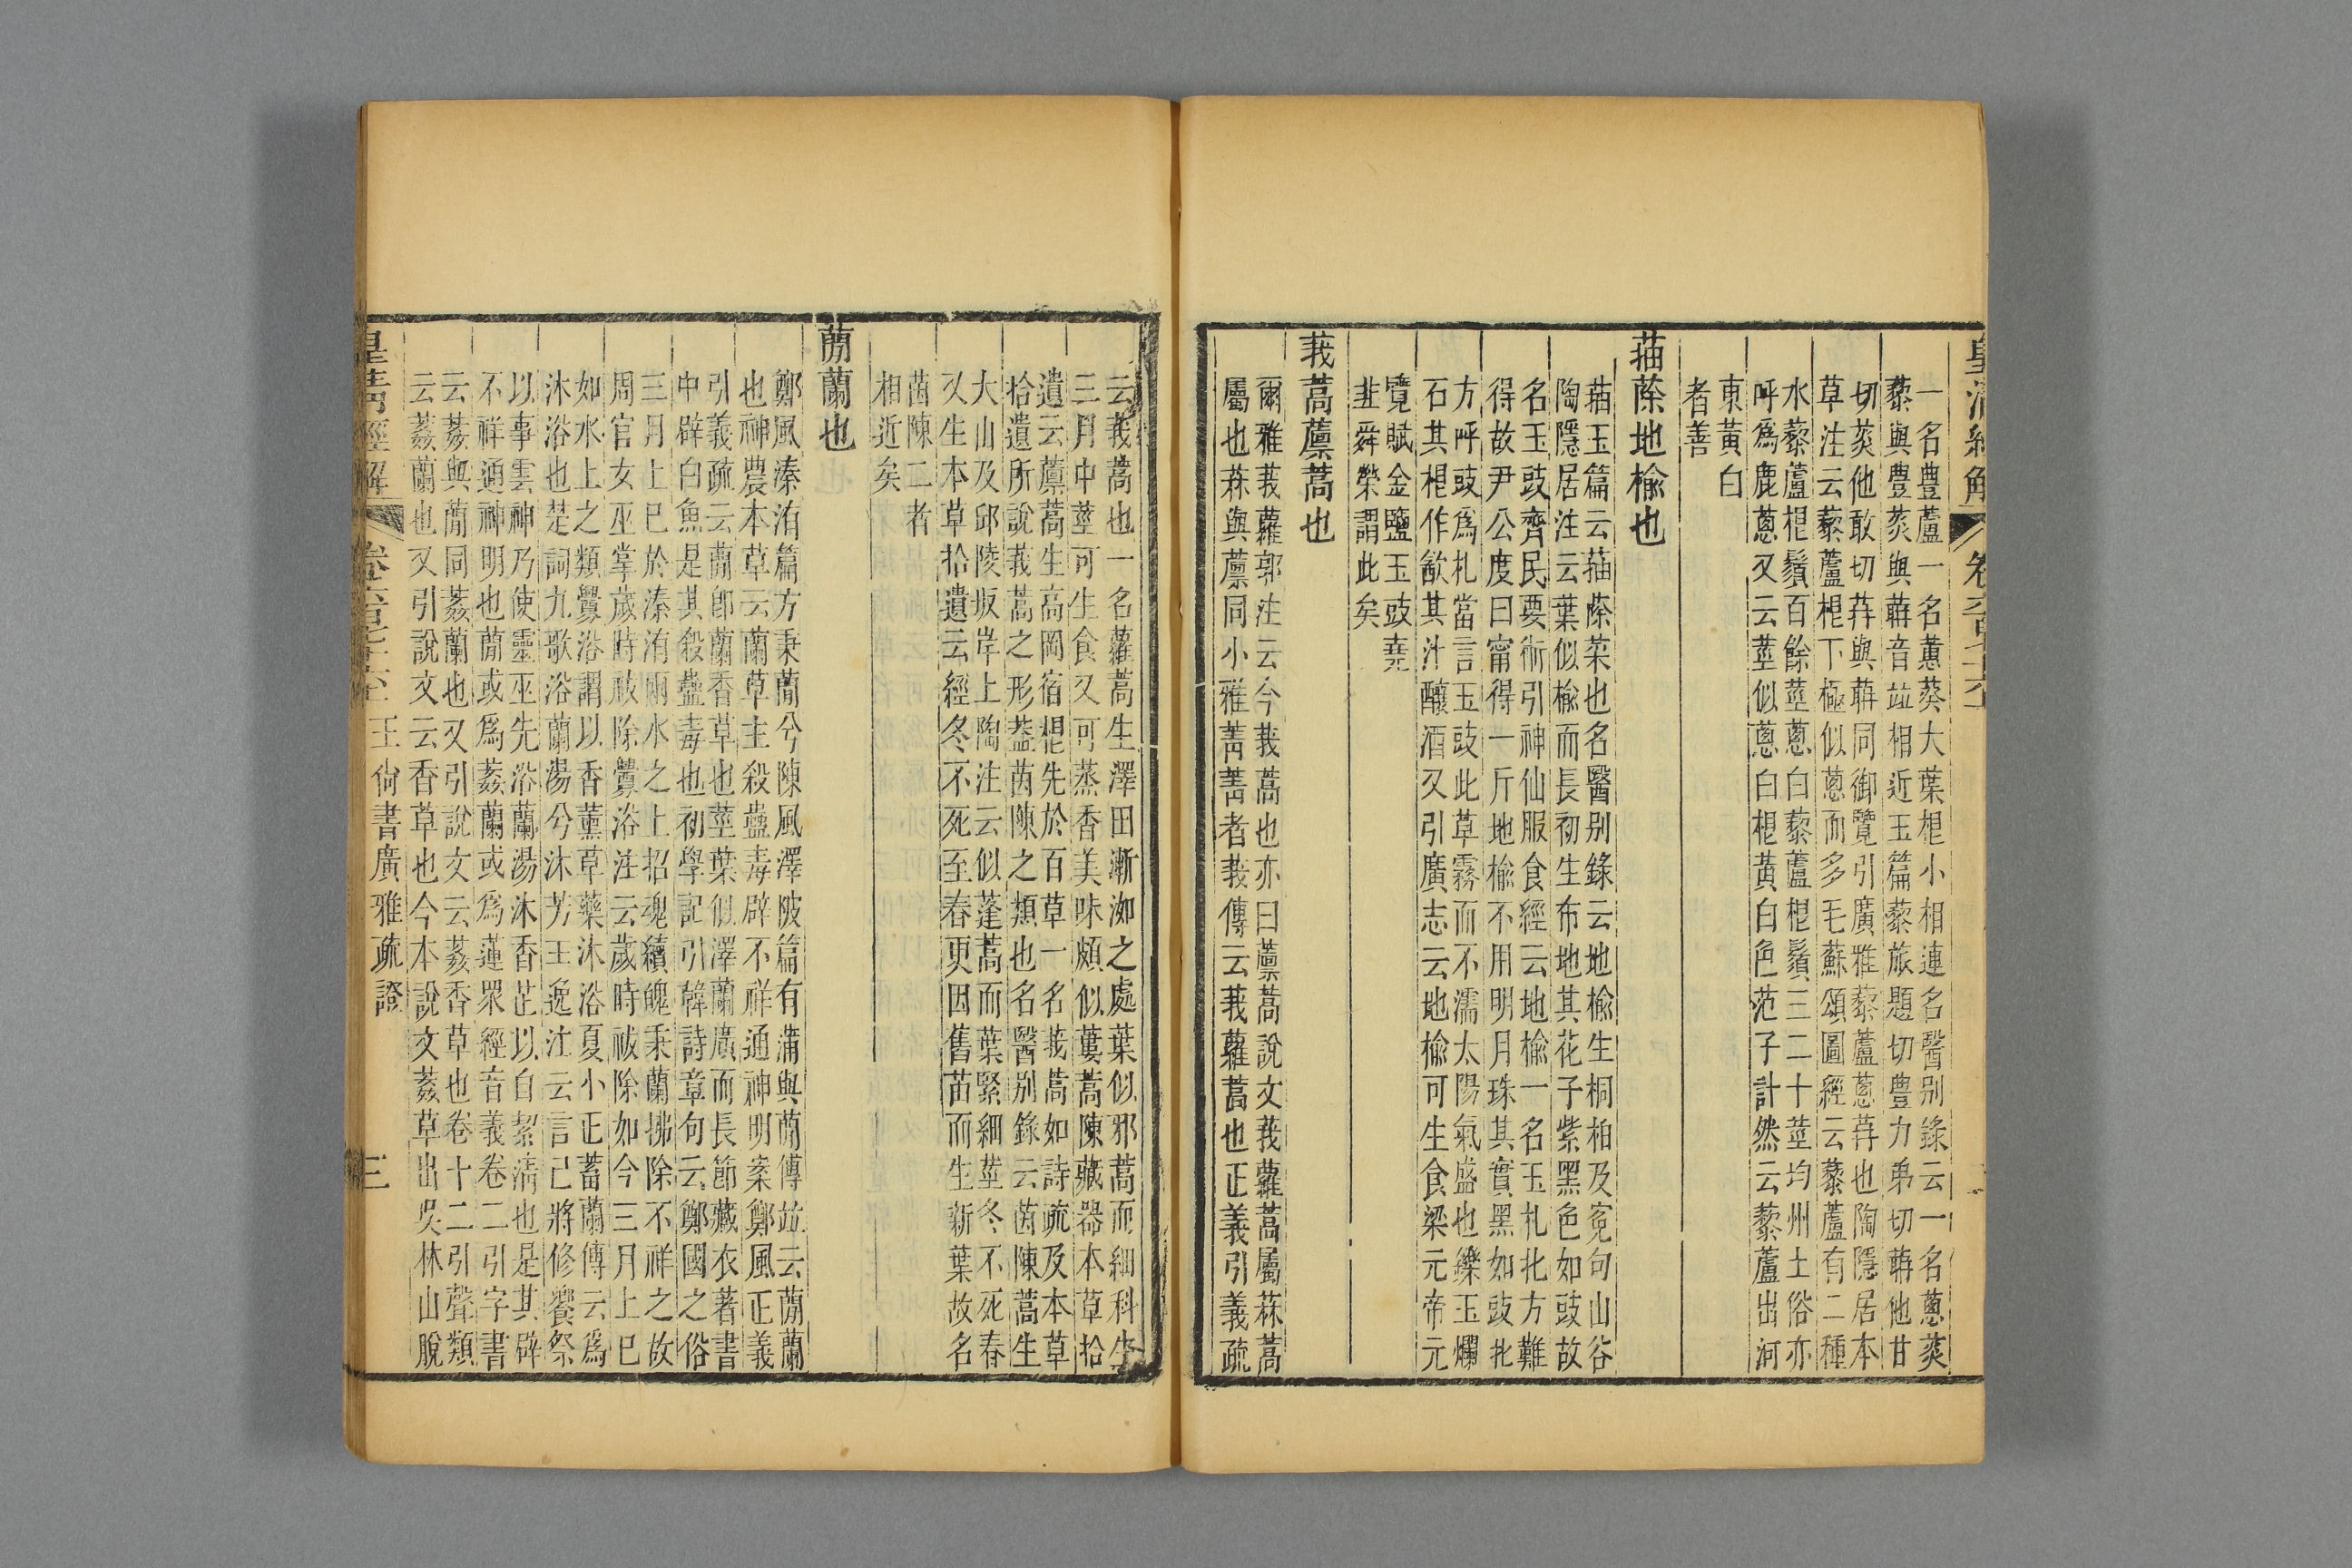 皇清經解 卷六百七十六
一名豊蘆一名蕙葵大葉根小相連名醫别錄云一名蔥菼
藜與豊菼與䔖音竝相近玉篇藜旅題切豊力弟切䔖他甘
切菼他敢切䒣與䔖同御覽引廣雅藜蘆蔥䒣也陶隱居本
草注云藜蘆根下極似蔥而多毛蘇頌圖經云藜蘆有二種
水藜蘆根鬚百餘莖蔥白藜蘆根鬚三二十莖均州土俗亦
呼爲鹿蔥又云莖似蔥白根黃白色范子計然云藜蘆出河
東黃白
者善
菗蒢地榆也
菗玉篇云菗蒢菜也名醫别錄云地榆生桐柏及寃句山谷
陶隱居注云葉似榆而長初生布地其花子紫黑色如豉故
名玉豉齊民要術引神仙服食經云地榆一名玉札北方難
得故尹公度曰甯得一斤地榆不用明月珠其實黑如豉北
方呼豉爲札當言玉豉此草霧而不濡太陽氣盛也鑠玉爛
石其根作飲其汁釀酒又引廣志云地榆可生食梁元帝元
覽賦金鹽玉豉堯
韭舜榮謂此矣
莪蒿藘蒿也
爾雅莪蘿郭注云今莪蒿也亦曰藘蒿說文莪蘿蒿屬菻蒿
屬也菻與藘同小雅菁菁者莪傳云莪蘿蒿也正義引義疏
云莪蒿也一名蘿蒿生澤田漸洳之處葉似邪蒿而細科生
三月中莖可生食又可蒸香美味頗似蔞蒿陳藏器本草拾
遺云藘蒿生高岡宿根先於百草一名莪蒿如詩疏及本草
拾遺所說莪蒿之形葢茵陳之類也名醫别錄云茵陳蒿生
大山及邱陵坂岸上陶注云似蓬蒿而葉緊細莖冬不死春
又生本草拾遺云經冬不死至春更因舊苗而生新葉故名
茵陳二者
相近矣
蕑蘭也
鄭風溱洧篇方秉蕑兮陳風澤陂篇有蒲與蕑傳竝云蕑蘭
也神農本草云蘭草主殺蠱毒辟不祥通神明案鄭風正義
引義疏云蕑卽蘭香草也莖葉似澤蘭廣而長節藏衣著書
中辟白魚是其殺蠱毒也初學記引韓詩章句云鄭國之俗
三月上巳於溱洧兩水之上招魂續魄秉蘭拂除不祥之故
周官女巫掌歲時祓除釁浴注云歲時祓除如今三月上巳
如水上之類釁浴謂以香薰草藥沐浴夏小正蓄蘭傳云爲
沐浴也楚詞九歌浴蘭湯兮沐芳王逸注云言己將修饗祭
以事雲神乃使靈巫先浴蘭湯沐香芷以自絜清也是其辟
不祥通神明也蕑或爲葌蘭或爲蓮眾經音義卷二引字書
云葌與蕑同葌蘭也又引說文云葌香草也卷十二引聲類
云葌蘭也又引說文云香草也今本說文葌草出吳林山脫
皇清經解 卷六百七十六 王尙書廣雅疏證 三